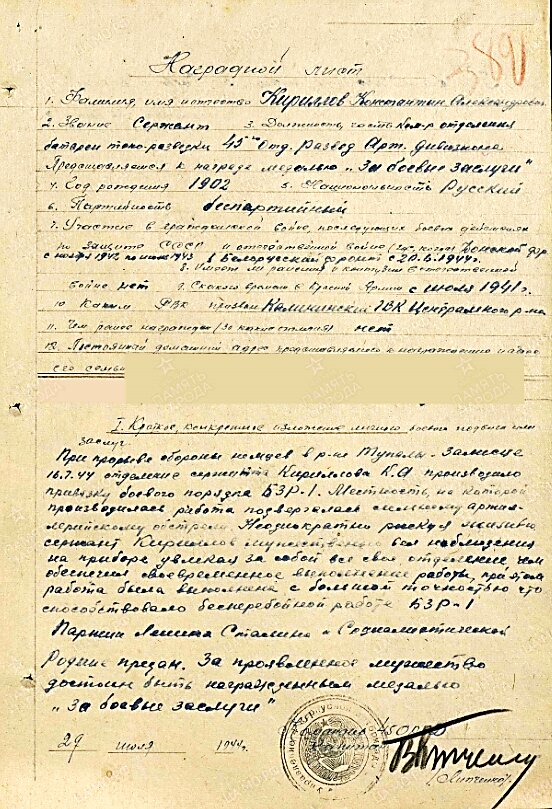 89
Наградной лист
1. Фамилия, имя и отчество Кириллов Константин Александрович
2. Звание Сержант 3. Должность, часть Ком-р отделения
батареи топо-разведки 45 отд. Развед Арт. Дивизиона
Представляется к награде медалью „За боевые заслуги"
4. Год рождения 1902 5. Национальность Русский
6. Партийность беспартийный
7. Участие в гражданской войне, последующих боевых действиях
по защите СССР и отечественной войне (где, когда) Донской фр
с ноября 1942 по 1943 1 Белорусский фронт с 20.6.1944г.
8. Имеет ли ранения и контузии в отечественной
войне нет 9. С какого времени в Красной Армии с июля 1941г.
10. Каким РВК призван Калининский РВК Центрального р-на
11. Чем ранее награжден (за какие отличия) нет
12. Постоянный домашний адрес представляемого к награждению и адрес
его семьи
I. Краткое, конкретное изложение личного боевого подвига или
заслуг
При прорыве обороны немцев в р-не Тупалы-
16.7.44 отделение сержанта Кириллова К.А производило
привязку боевого порядка БЗР-1. Местность, на которой
производилась работа подвергалась сильному артил-
лерийскому обстрелу. Неоднократно рискуя жизнью
сержант Кириллов мужественно вел наблюдения
на приборе увлекая за собой все свое отделение чем
обеспечил своевременное выполнение работы, при этом
работа была выполнена с большой точностью что
способствовало бесперебойной работе БЗР-1
Партии Ленина Сталина и Социалистической
Родине предан. За проявленное мужество
достоин быть награжденным медалью
„За боевые заслуги"
45 ОРАД
29 июля 1944г. Капитан